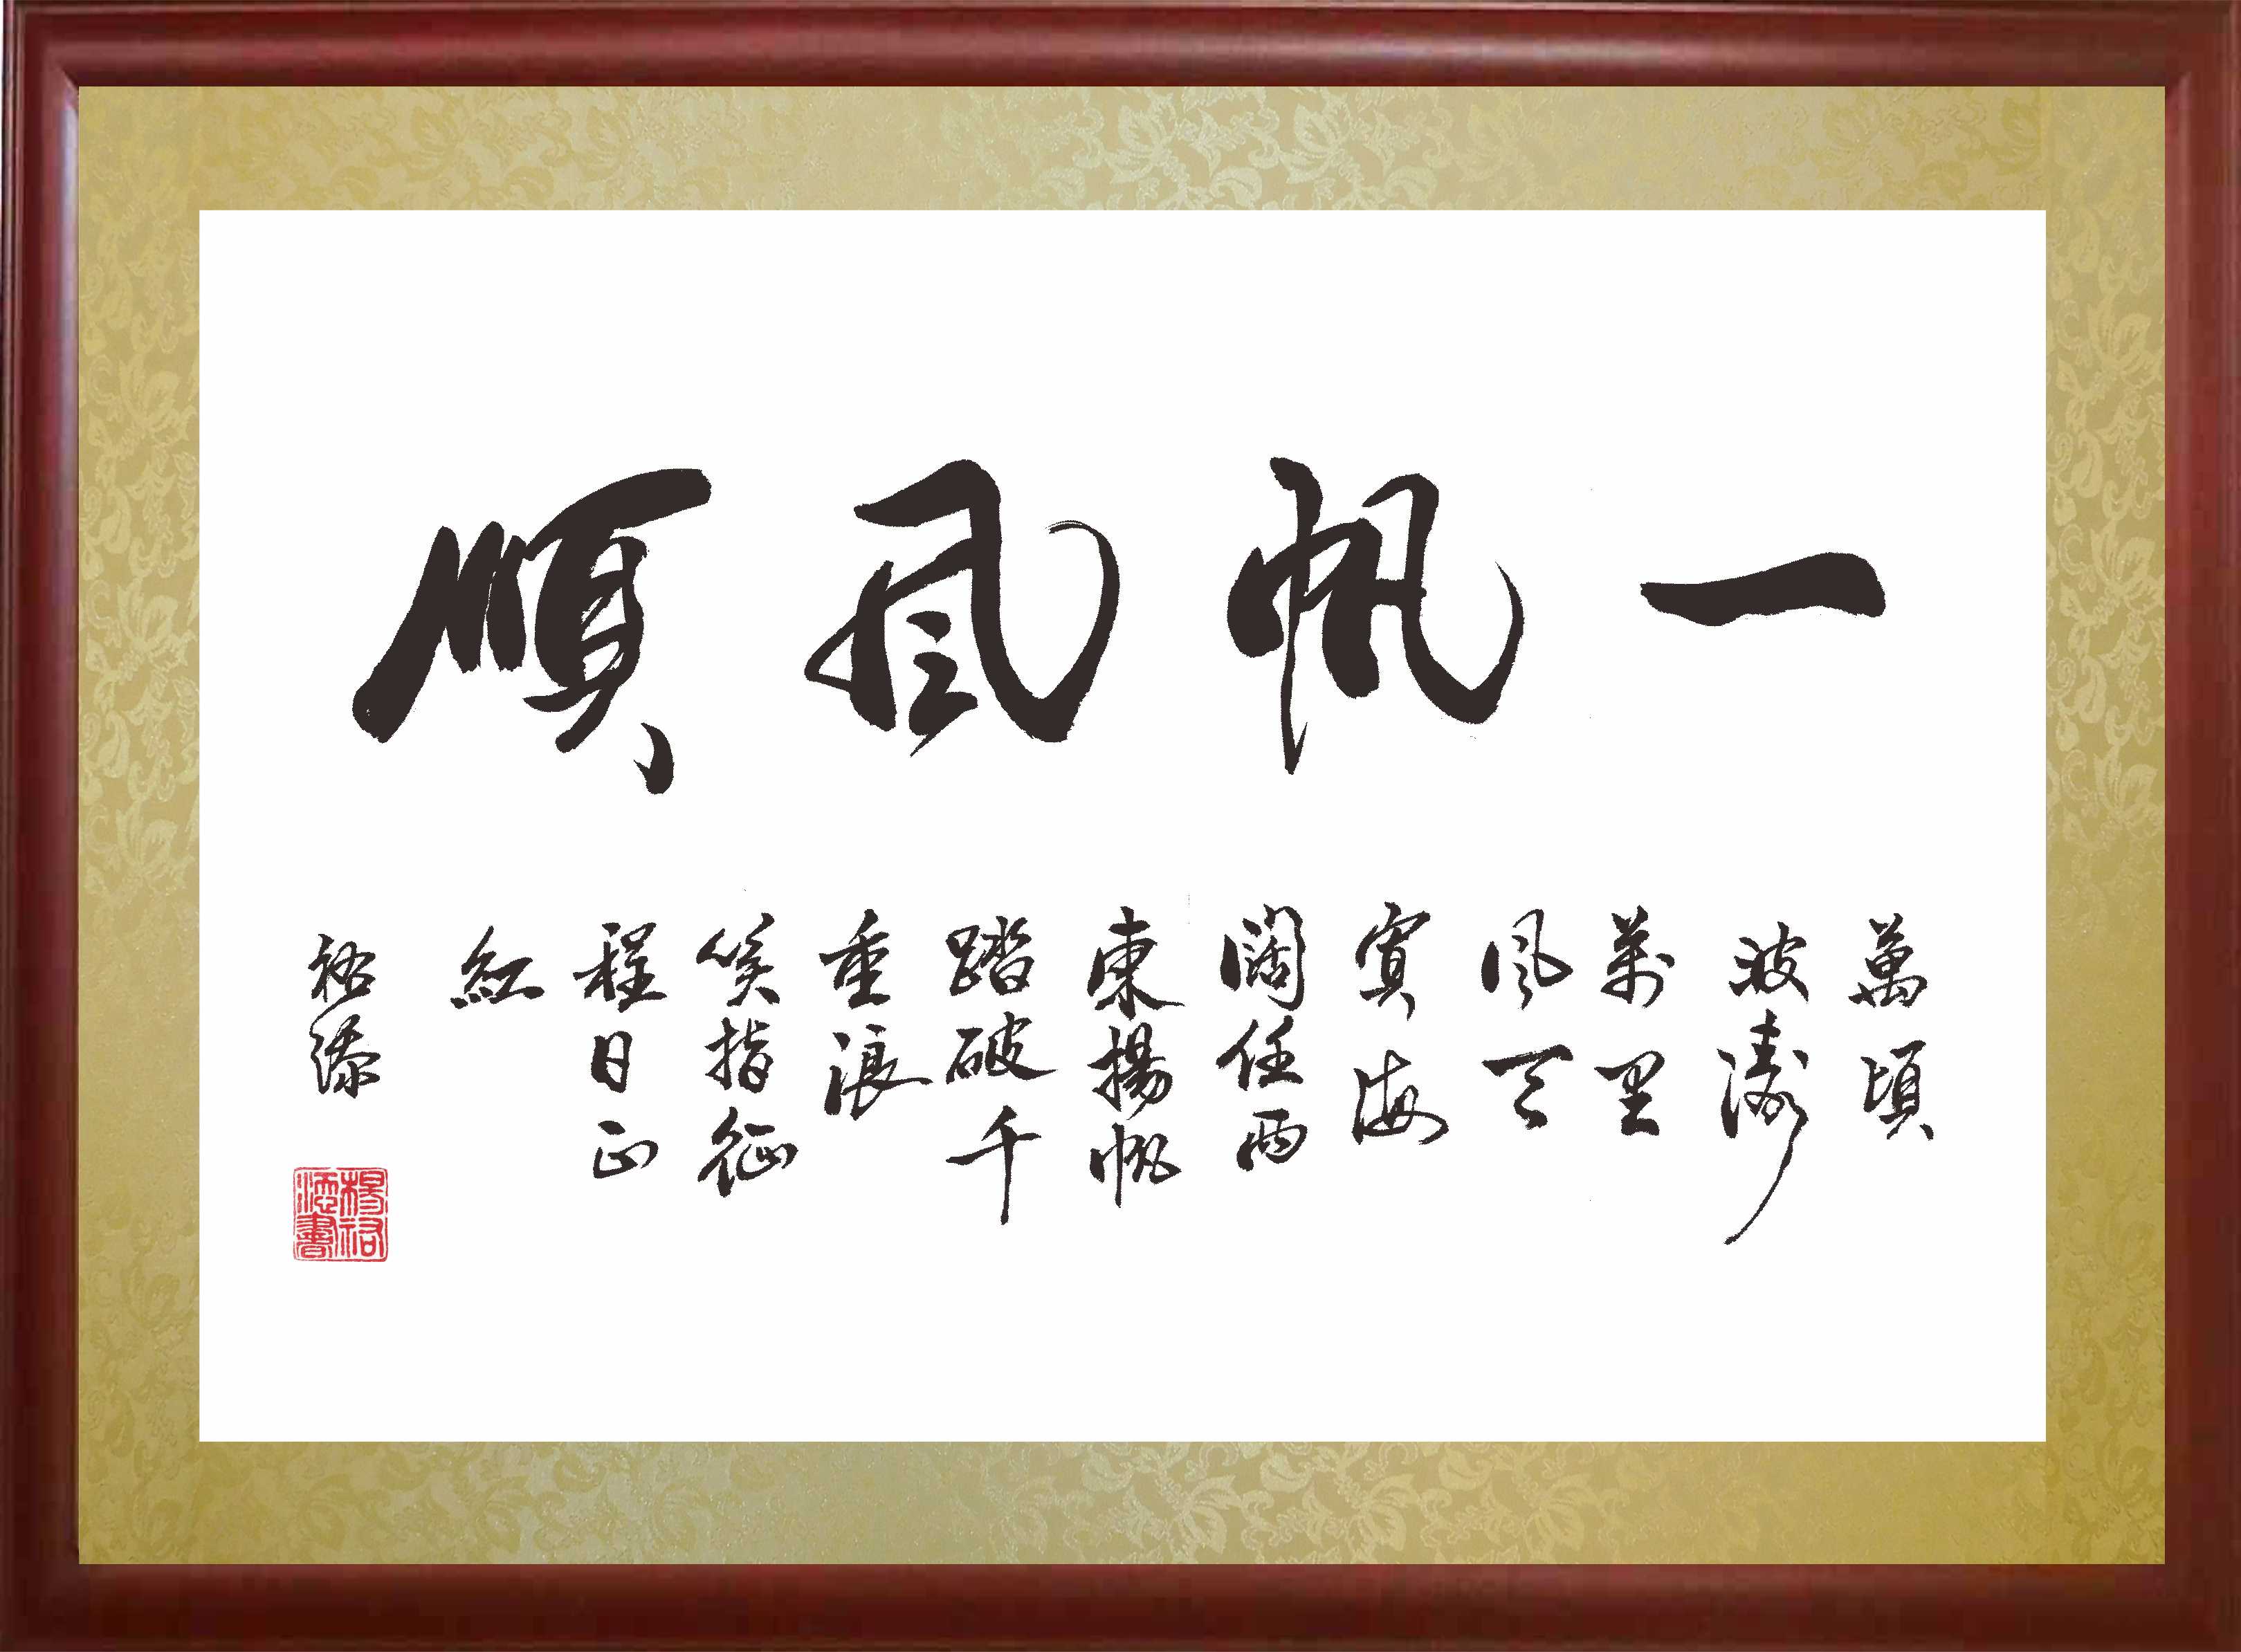 一帆風順
萬頃
波濤
萬里
風天
寬海
闊任西
東揚帆
踏破千
重浪
笑指征
程日正
紅
裕添
楊裕
添書